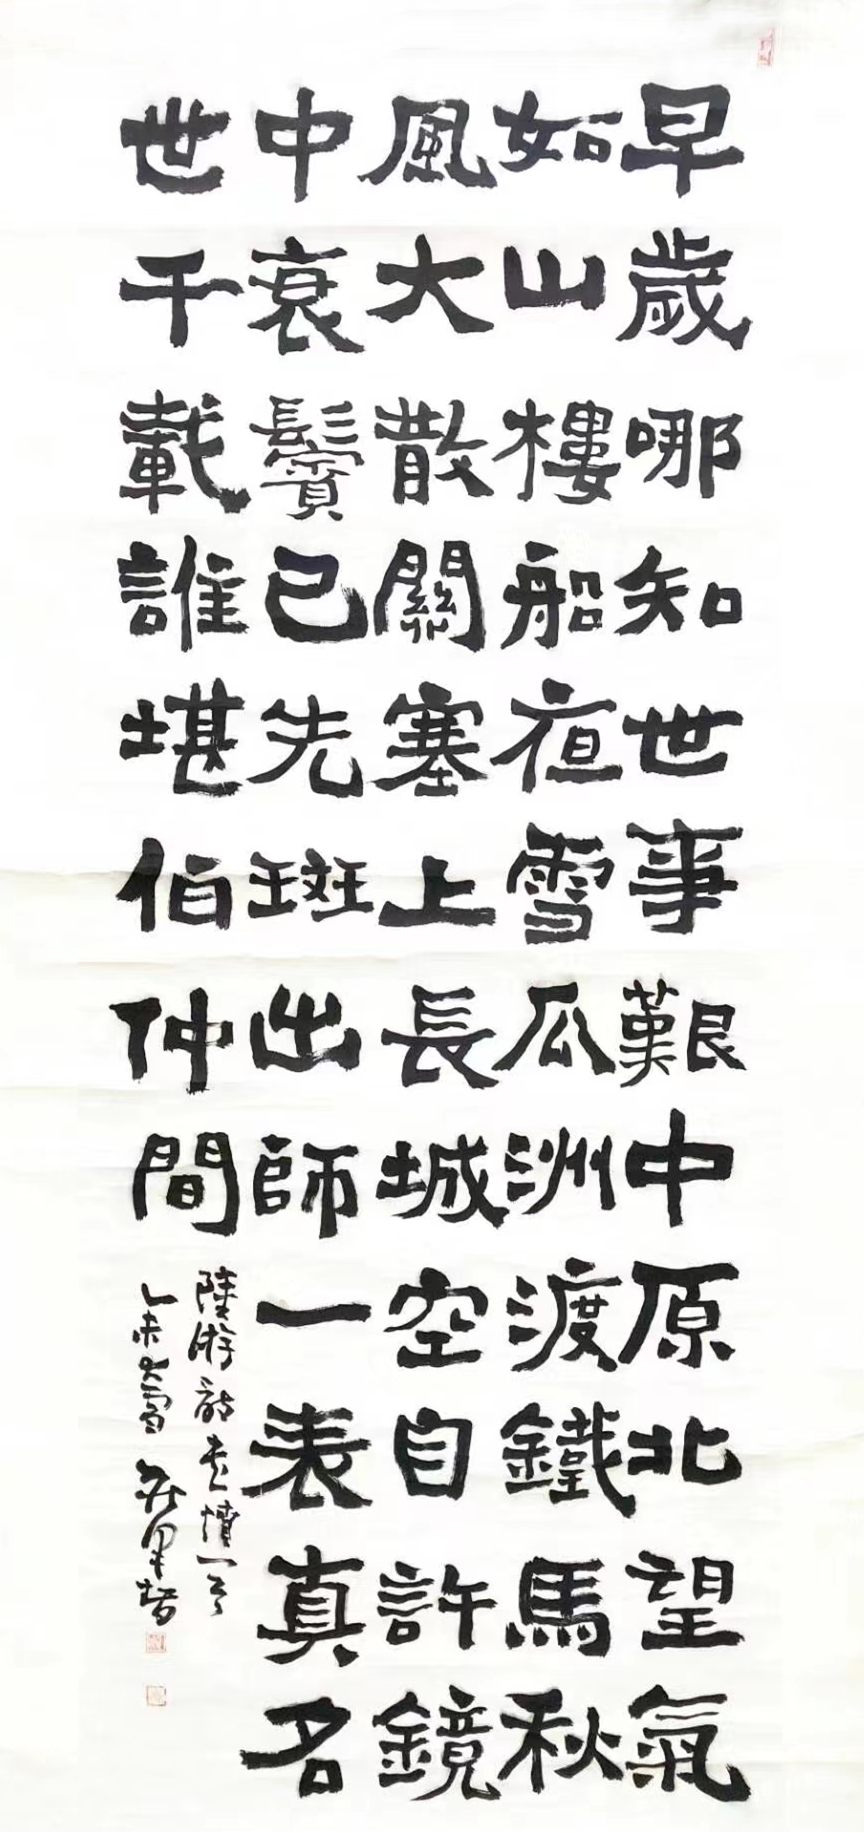 早歲哪知世事艱中原北望氣
如山樓船夜雪瓜洲渡鐵馬秋
風大散關塞上長城空自許鏡
中衰鬢已先斑出師一表真名
世千載誰堪伯仲間
陸游詩書憤一首
乙未大雪